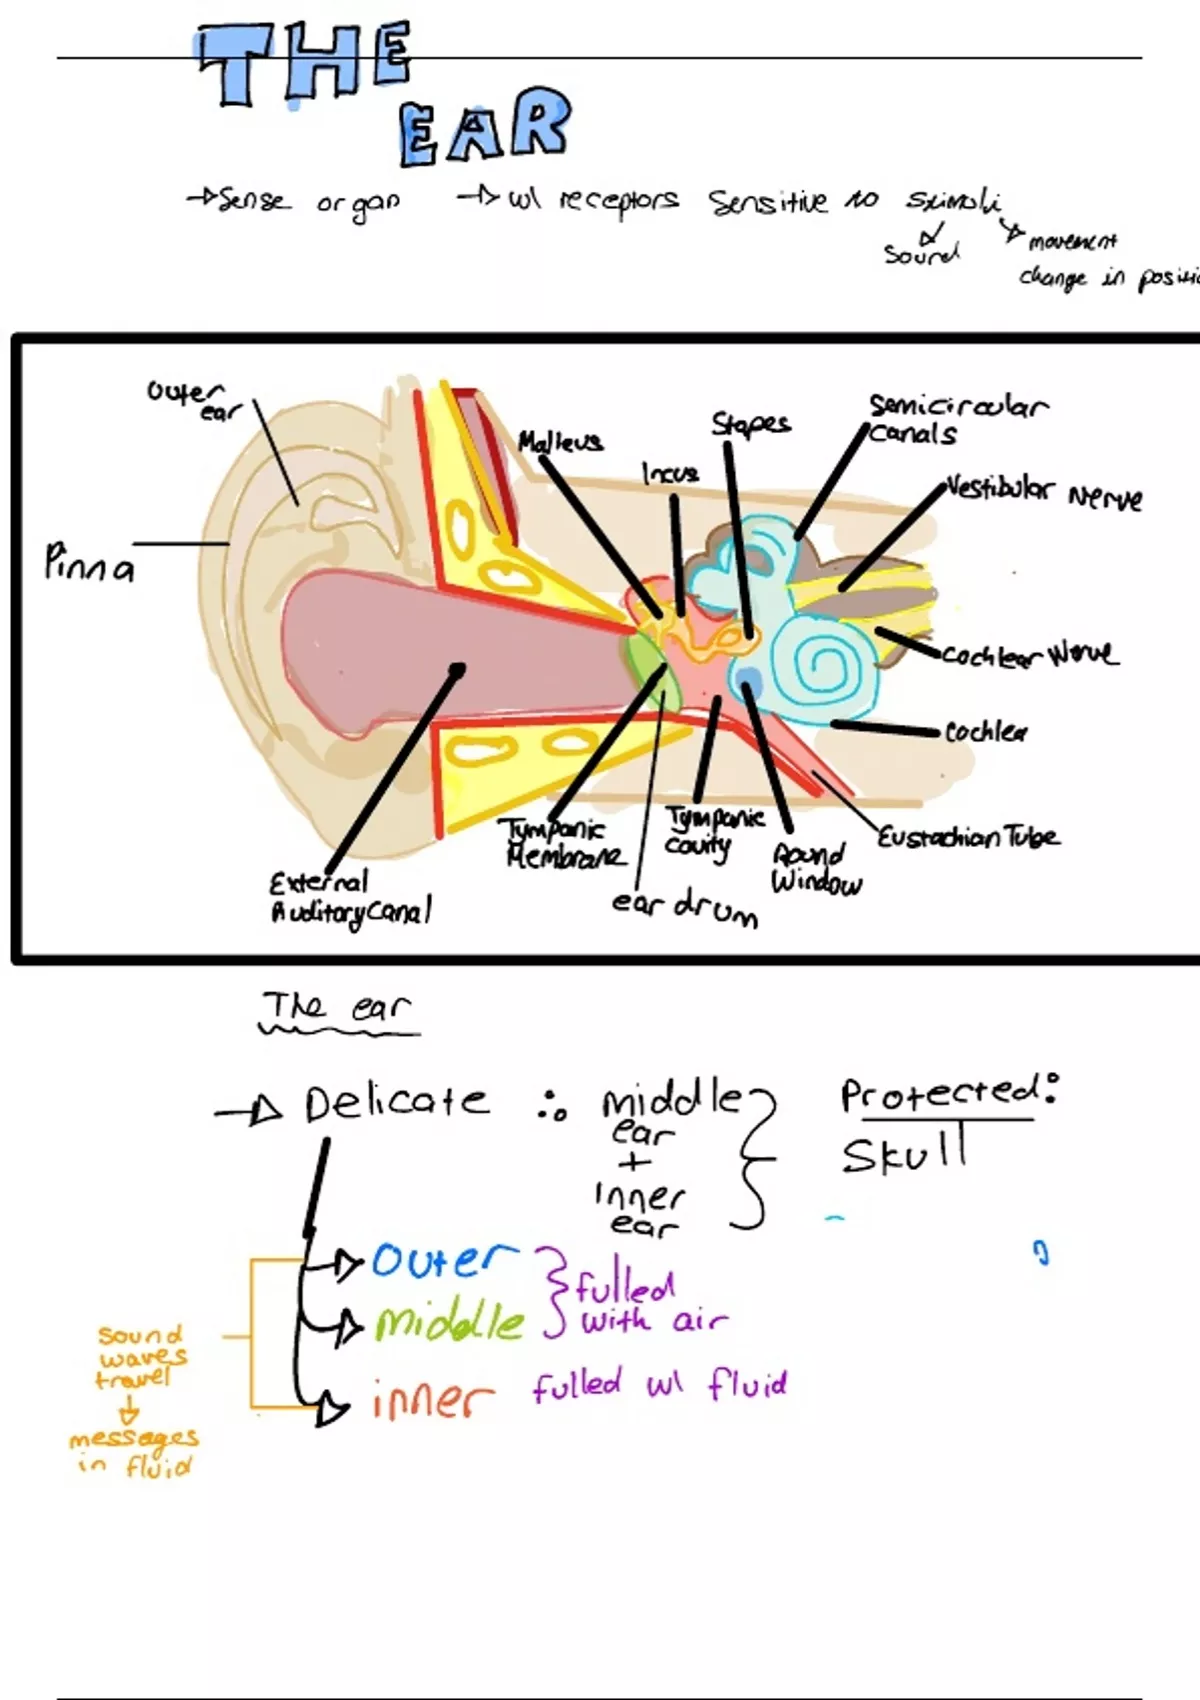 THE
EAR
→ Sense organ → w/ receptors sensitive to stimuli
sound
movement
change in positio
Outer
ear
Pinna
Malleus
Incus
Stapes
Semicircular
canals
Vestibular Nerve
Cochlear Nerve
Cochlea
Eustachian Tube
Round
Window
Tympanic
cavity
ear drum
Tympanic
Membrane
External
Auditory canal
The ear
→ Delicate ∴ middle
ear
+
inner
ear
Protected:
Skull
outer
middle
fulled
with air
inner fulled w/ fluid
sound
waves
travel
↓
messages
in fluid